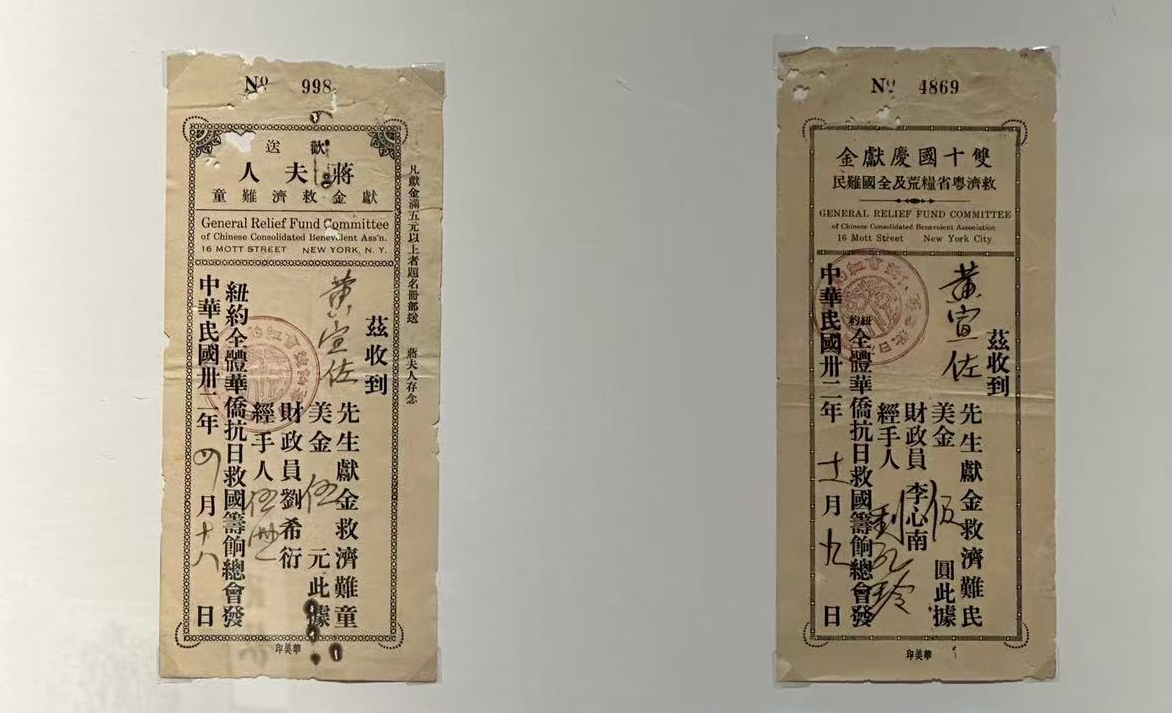 Nº 998
歡送
蔣夫人
獻金救濟難童
General Relief Fund Committee
of Chinese Consolidated Benevolent Ass'n.
16 MOTT STREET NEW YORK, N. Y.
凡獻金滿五元以上者題名冊部送 蔣夫人存念
茲收到
黃宣佐
先生獻金救濟難童
美金 伍 元此據
財政員劉希衍
經手人
紐約全體華僑抗日救國籌餉總會發
中華民國卅二年 四 月 十八 日
華美印
Nº 4869
雙十國慶獻金
救濟粵省糧荒及全國難民
GENERAL RELIEF FUND COMMITTEE
of Chinese Consolidated Benevolent Association
16 Mott Street New York City
茲收到
黃宣佐
先生獻金救濟難民
美金 伍 圓此據
財政員 李心南
經手人
紐約全體華僑抗日救國籌餉總會發
中華民國卅二年 十一 月 九 日
華美印